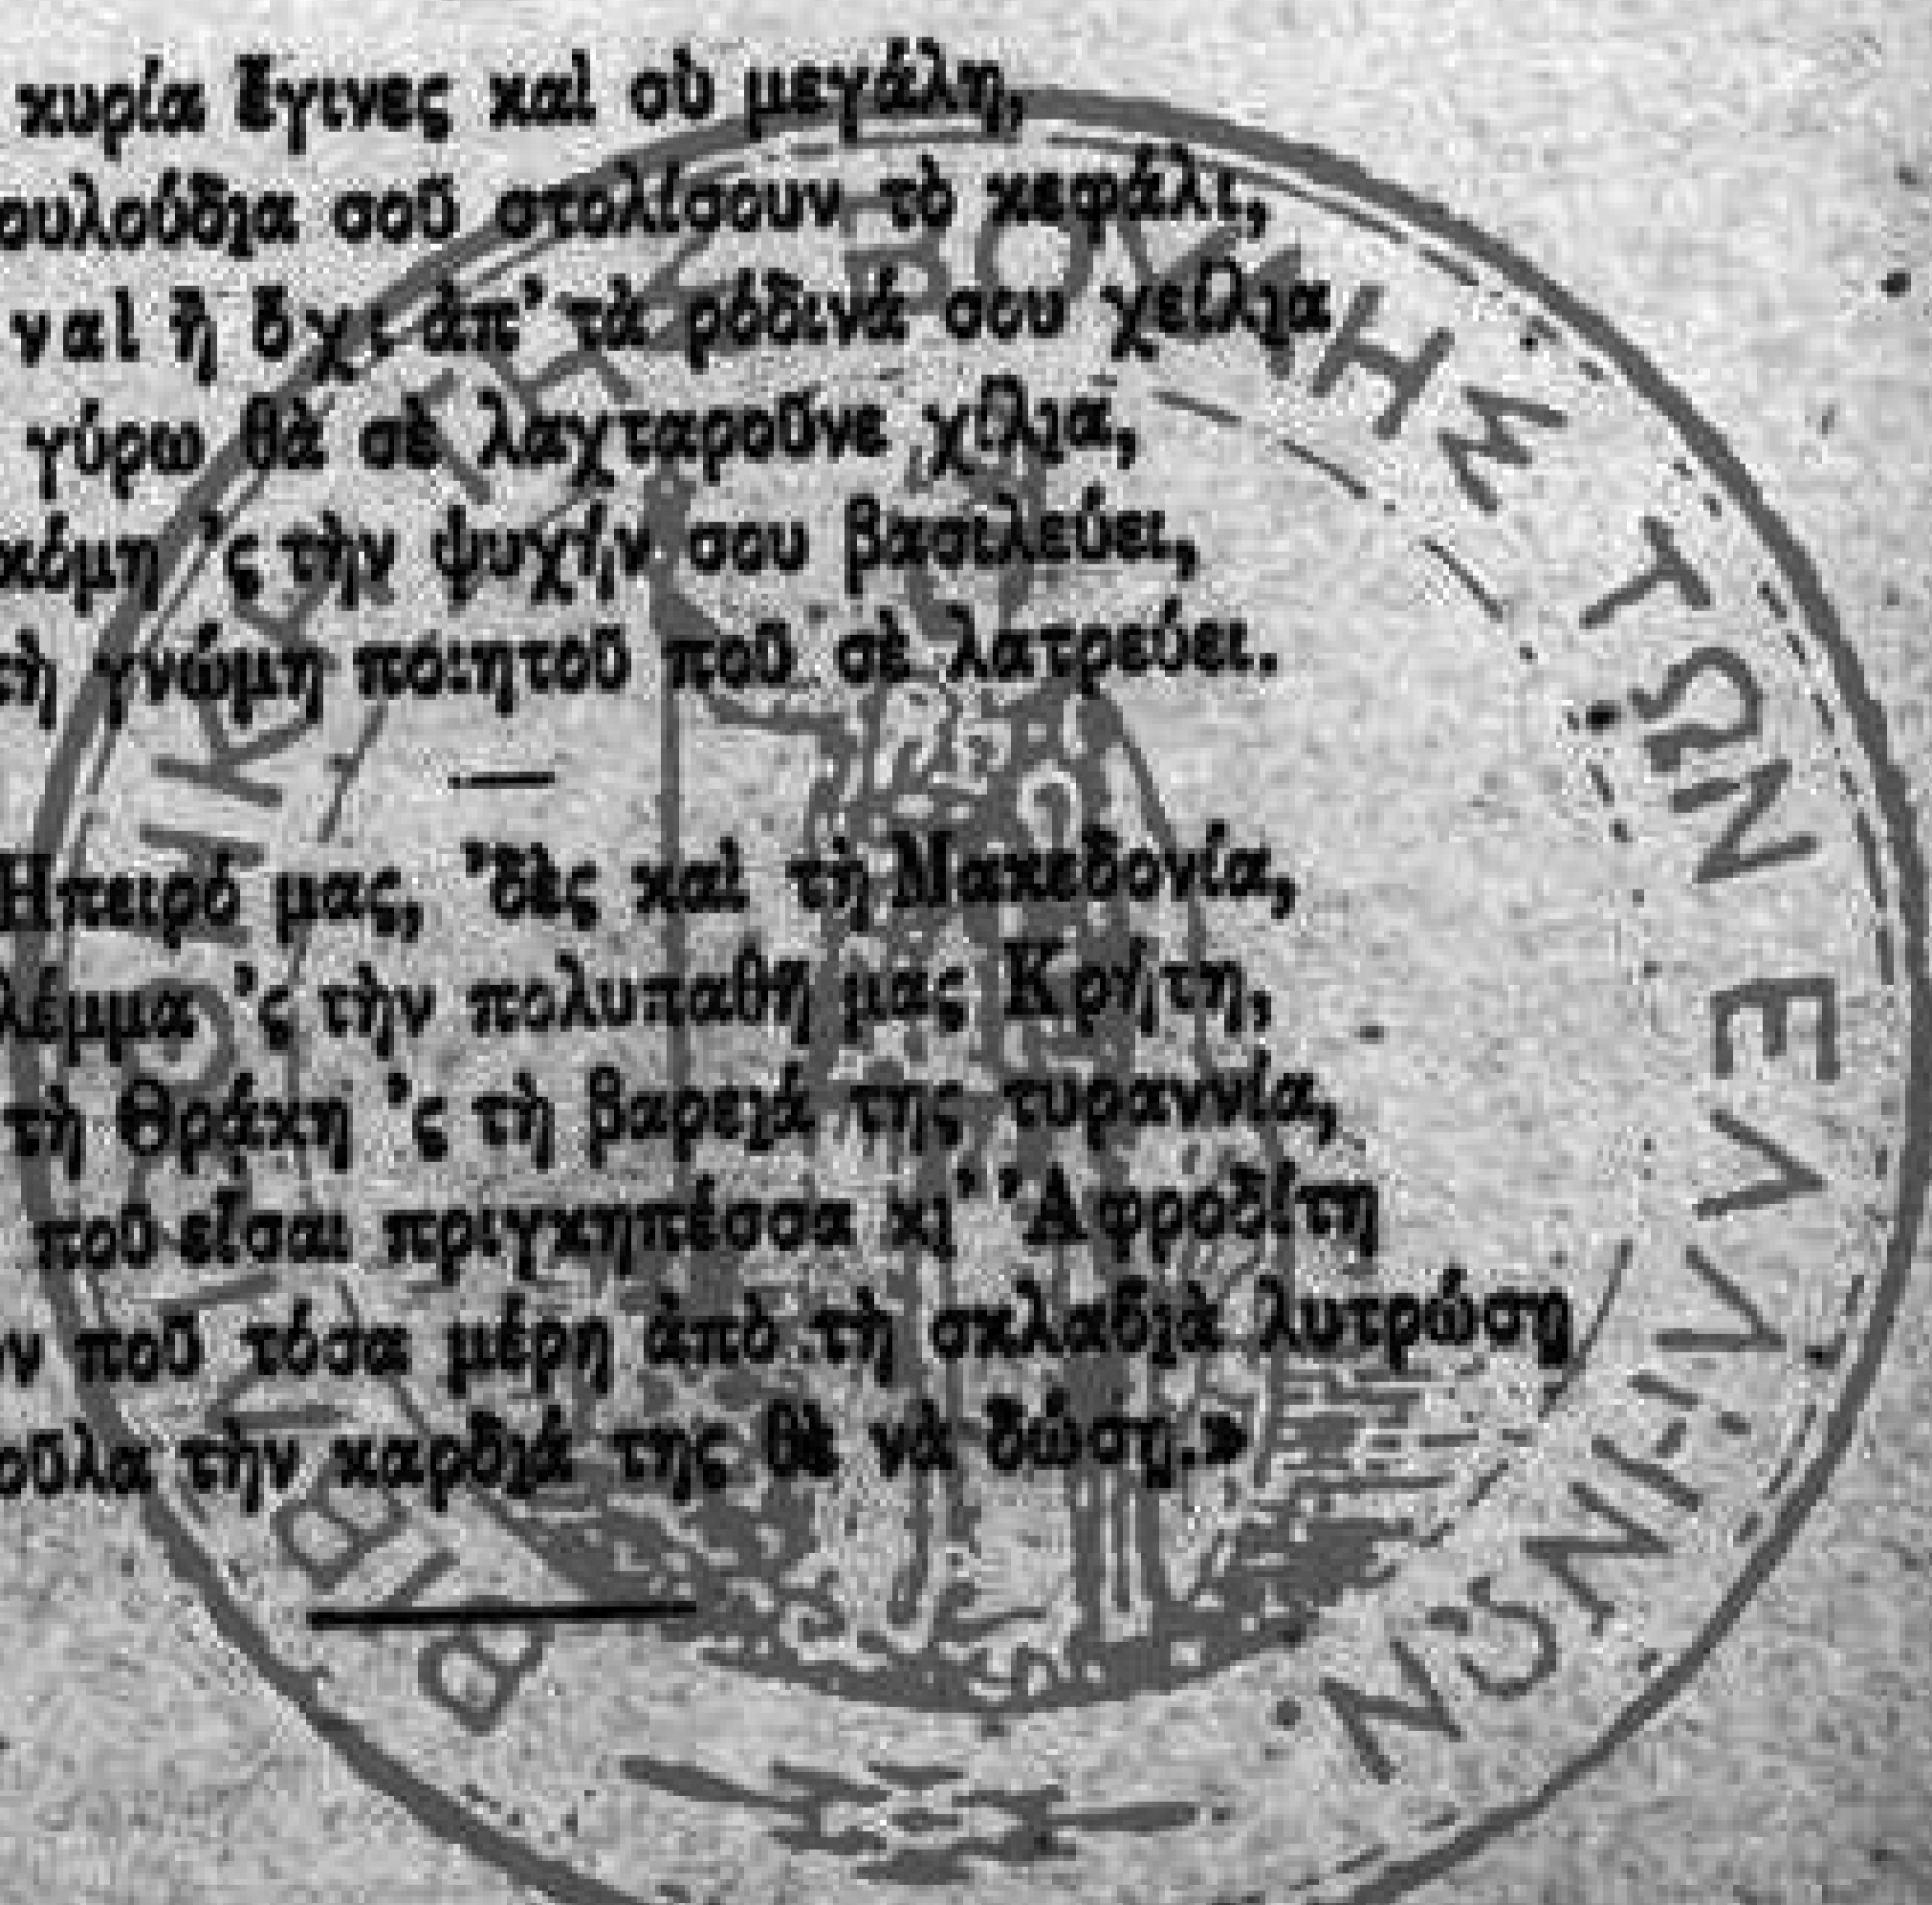 κυρία ἔγινες καὶ σὺ μεγάλη,
ουλούδια σοῦ στολίσουν τὸ κεφάλι,
ναὶ ἢ ὄχι ἀπ' τὰ ρόδινά σου χείλια
γύρω θὰ σὲ λαχταροῦνε χίλια,
ἀκόμη 'ς τὴν ψυχήν σου βασιλεύει,
τὴ γνώμη ποιητοῦ ποῦ σὲ λατρεύει.
Ἤπειρό μας, 'δὲς καὶ τὴ Μακεδονία,
λέμμα 'ς τὴν πολυπαθῆ μας Κρήτη,
τὴ Θράκη 'ς τὴ βαρειά της τυραννία,
ποῦ εἶσαι πριγκηπέσσα κι' Ἀφροδίτη
ν ποῦ τόσα μέρη ἀπὸ τὴ σκλαβιὰ λυτρώσῃ
οῦλα τὴν καρδιά της θὲ νὰ δώσῃ.»
ΒΙΒΛΙΟΘΗΚΗ ΤΗΣ ΒΟΥΛΗΣ ΤΩΝ ΕΛΛΗΝΩΝ